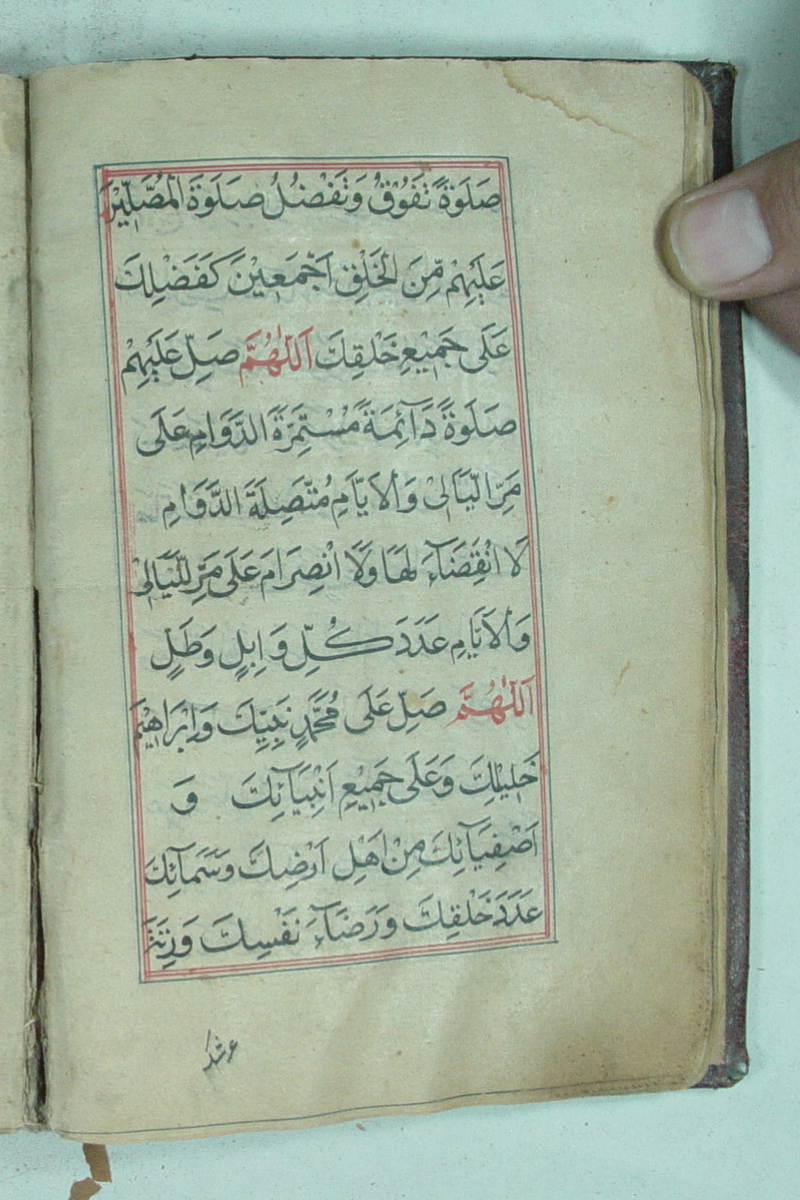 صَلَوٰةً تَفُوْقُ وَتَفْضُلُ صَلَوٰةَ الْمُصَلِّيْنَ
عَلَيْهِمْ مِّنَ الْخَلْقِ اَجْمَعِيْنَ كَفَضْلِكَ
عَلَى جَمِيْعِ خَلْقِكَ اَللّٰهُمَّ صَلِّ عَلَيْهِمْ
صَلَوٰةً دَآئِمَةً مُسْتَمِرَّةَ الدَّوَامِ عَلَى
مَرِّ الَّيَالِىْ وَالْاَيَّامِ مُتَّصِلَةَ الدَّوَامِ
لَا انْقِضَآءَ لَهَا وَلَا انْصِرَامَ عَلَى مَرِّ اللَّيَالِىْ
وَالْاَيَّامِ عَدَدَ كُلِّ وَابِلٍ وَطَلٍّ
اَللّٰهُمَّ صَلِّ عَلَى مُحَمَّدٍ نَبِيِّكَ وَاِبْرَاهِيْمَ
خَلِيْلِكَ وَعَلَى جَمِيْعِ اَنْبِيَآئِكَ وَ
اَصْفِيَآئِكَ مِنْ اَهْلِ اَرْضِكَ وَسَمَآئِكَ
عَدَدَ خَلْقِكَ وَرِضَآءَ نَفْسِكَ وَزِنَةَ
عرشك